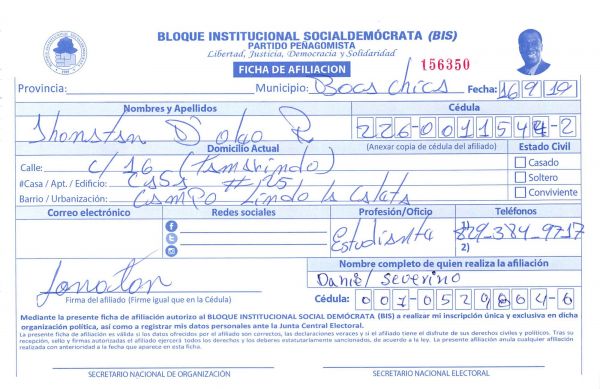 BLOQUE INSTITUCIONAL SOCIALDEMÓCRATA (BIS)
PARTIDO PEÑAGOMISTA
Libertad, Justicia, Democracia y Solidaridad
FICHA DE AFILIACION
156350
Provincia: Municipio: Boca chica Fecha: 16 9 19
Nombres y Apellidos Cédula
Jhonstan D' oleo R 226-0011544-2
Domicilio Actual (Anexar copia de cédula del afiliado) Estado Civil
Calle: C/16 (Tamarindo) Casado
#Casa / Apt. / Edificio: Casa # 125 Soltero
Barrio / Urbanización: Campo Lindo la Caleta Conviviente
Correo electrónico Redes sociales Profesión/Oficio Teléfonos
Estudianta 1) 829-384-9717
2)
Nombre completo de quien realiza la afiliación
Jonatan Daniel Severino
Firma del afiliado (Firme igual que en la Cédula) Cédula: 007-052 004-6
Mediante la presente ficha de afiliación autorizo al BLOQUE INSTITUCIONAL SOCIAL DEMÓCRATA (BIS) a realizar mi inscripción única y exclusiva en dicha
organización política, así como a registrar mis datos personales ante la Junta Central Electoral.
La presente ficha de afiliación es válida si los datos ofrecidos por el afiliado son correctos, las declaraciones veraces y si el afiliado tiene el disfrute de sus derechos civiles y políticos. Tras su
recepción, sello y firmas autorizadas el afiliado ejercerá todos los derechos y los deberes estatutariamente sancionados, de acuerdo a la ley. La presente afiliación anula cualquier afiliación
realizada con anterioridad a la fecha que aparece en esta ficha.
SECRETARIO NACIONAL DE ORGANIZACIÓN SECRETARIO NACIONAL ELECTORAL